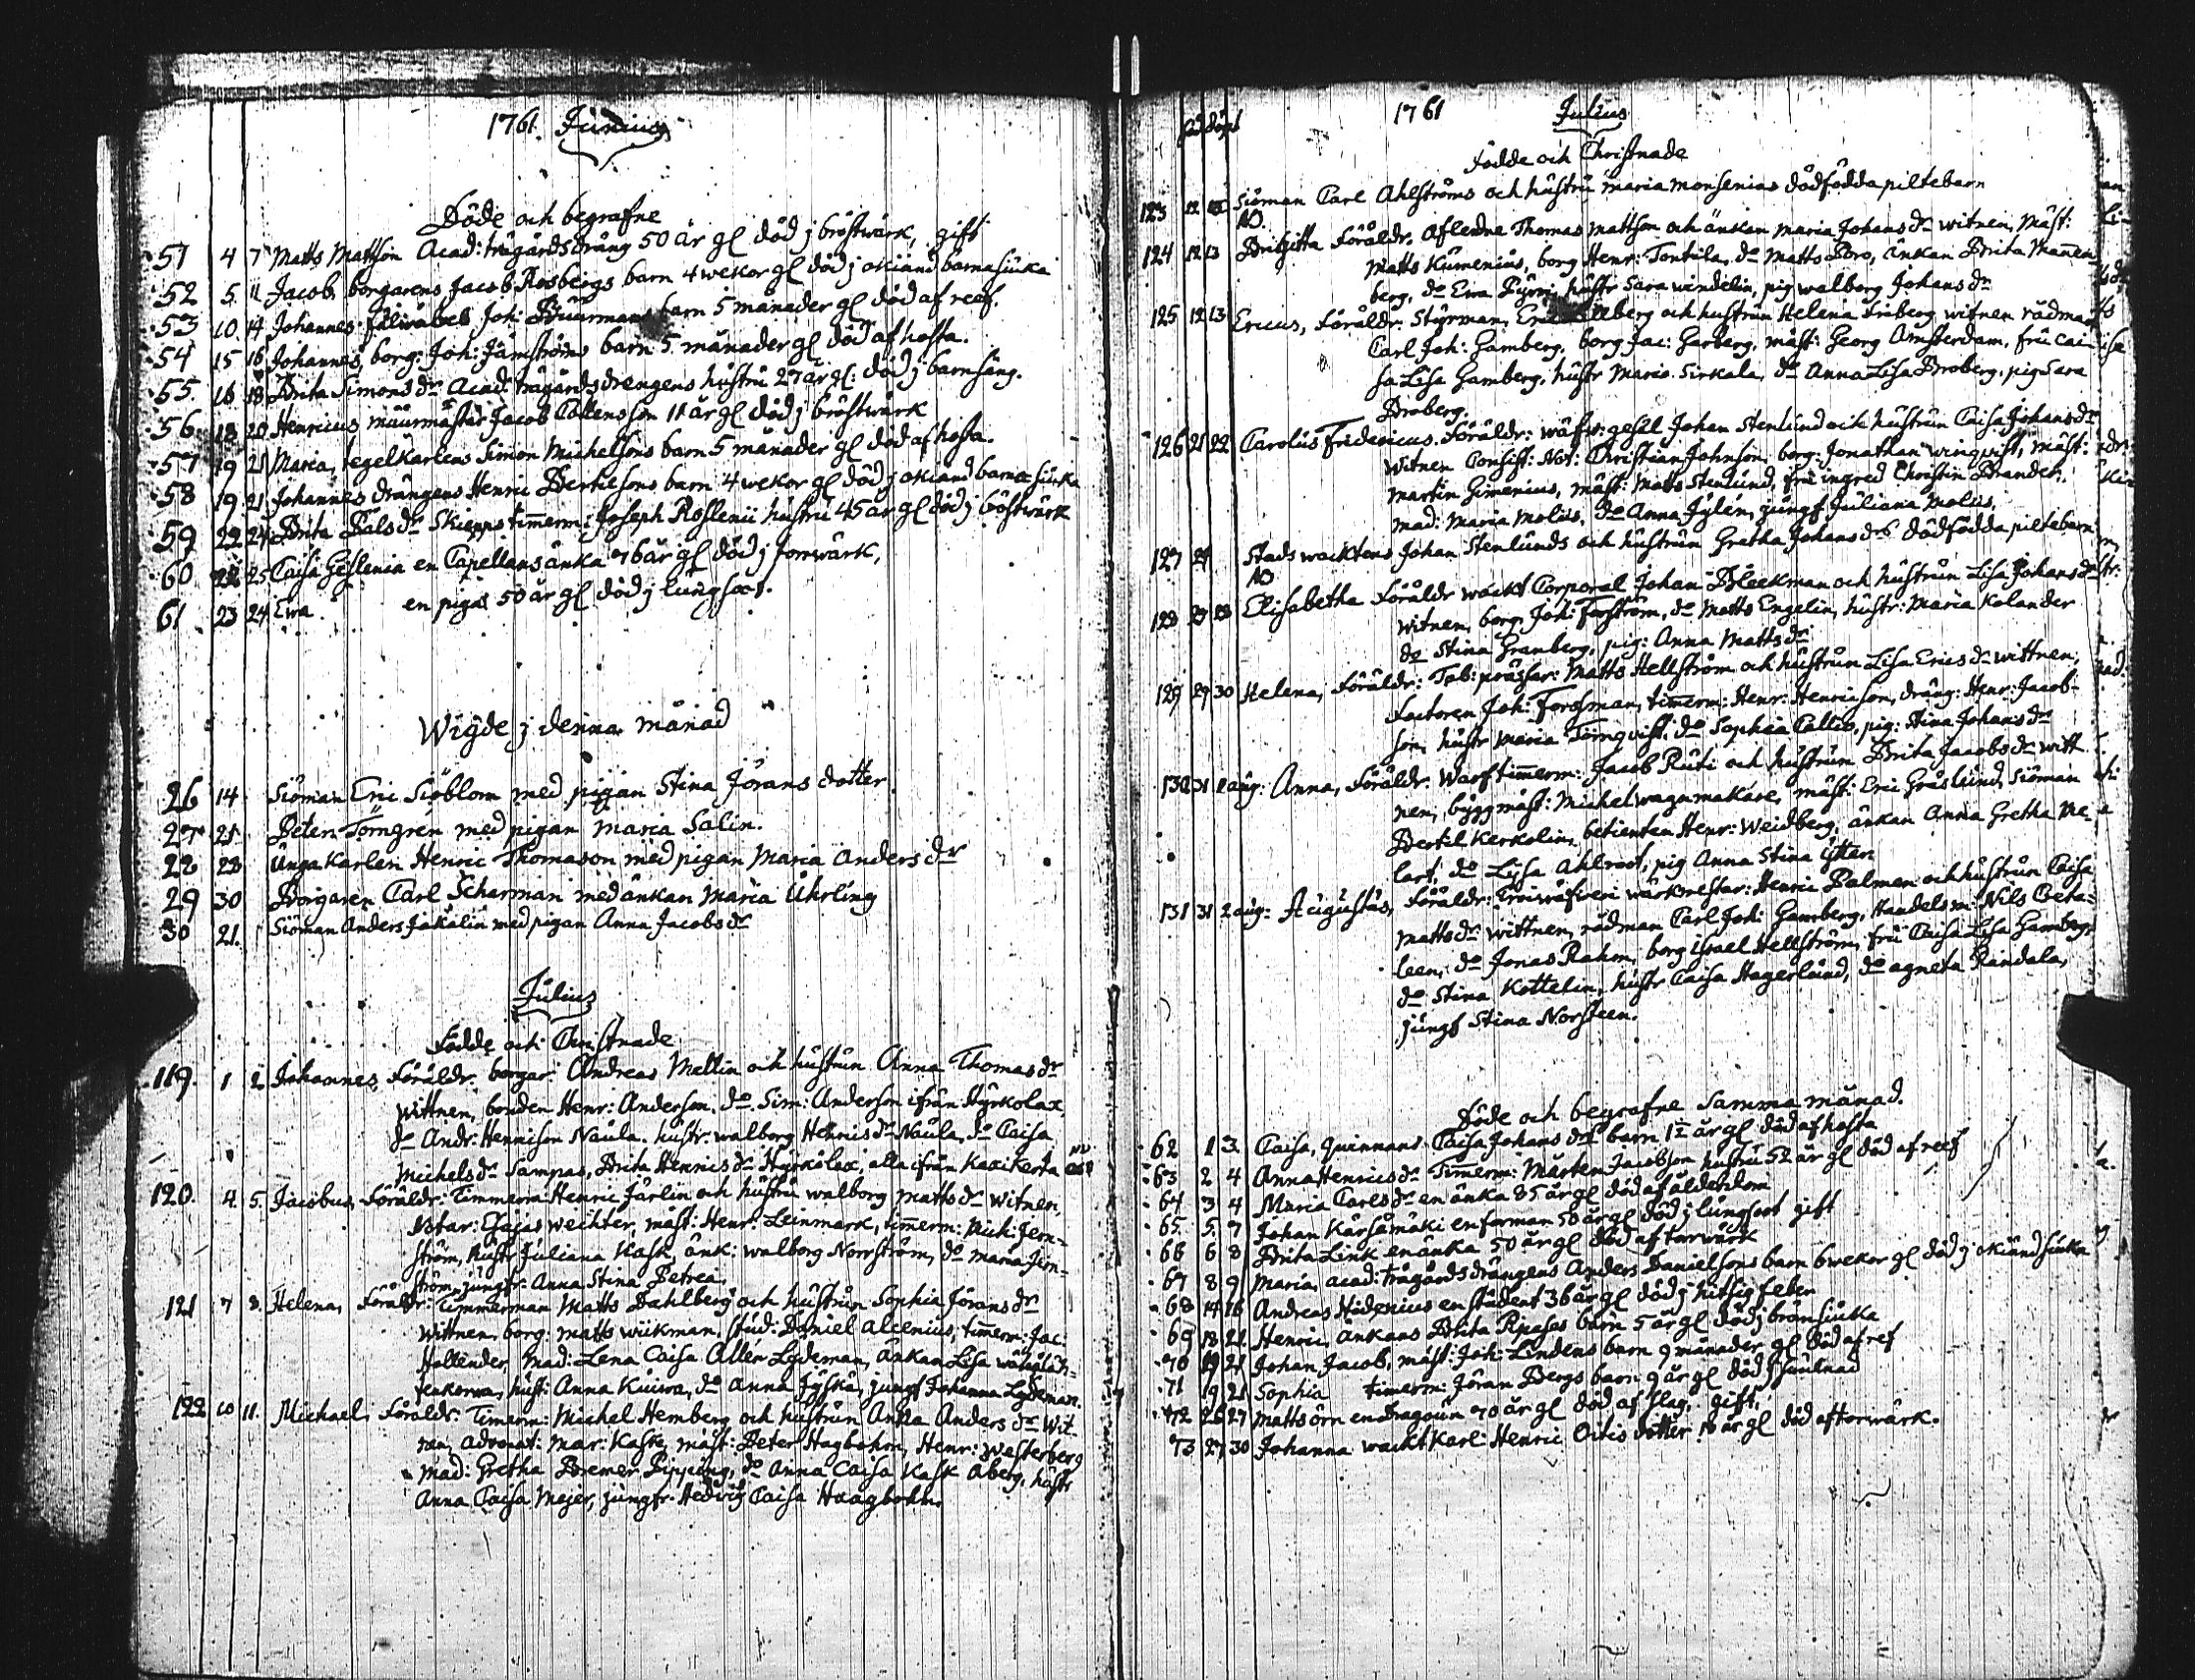 1761. Junius
Döde och begrafne
51 4 7 Matts Mattson Acad: trägårdsdräng 50 år gl död j bröstwärk, gift
52 5. 11 Jacob, borgarens Jacob Rosbergs barn 4 wekor gl död j okiänd barnasiuka
53 10. 14 Johannes Joh: barn 5 månader gl död af reef.
54 15 16 Johannes, borg: Joh: Jämströms barn 5 månader gl död af hosta.
55. 16 18 Brita Simons dr Acad: trägårdsdrengens hustru 27 år gl: död j barnsäng.
56. 18 20 Henricus muurmästar Jacob son 11 år gl död j bröstwärk
57 19 21 Maria, tegelkarlens Simon Michelsons barn 5 månader gl död af hosta.
58 19 21 Johannes drängens Henric Bertilsons barn 4 wekor gl död j okiand barnasiuka
59 22 24 Brita Pals dr Skiepps tim̄erm: Joseph Roslenii hustru 45 år gl död j bröstwärk
60 25 Caisa Geslenia en Capellans änka 76 år gl död j torrwärk,
61 23 24 Ewa en piga 50 år gl död j lungsot.
Wigde j denna månad
26 14 Siöman Eric Siöblom med pigan Stina Jörans dotter
27 21 Peter Törngren med pigan Maria Salin.
28 28 Unga Karlen Henric Thomason med pigan Maria Anders dr
29 30 Borgaren Carl Scharman med änkan Maria Uhrling
30 21. Siöman Anders Jakalin med pigan Anna Jacobs dr
Julius
Födde och Christnade
119. 1 2 Johannes, Föräldr. borgar: Andreas Mellin och hustrun Anna Thomas dr
Wittnen, bonden Henr: Anderson, do Sim: Anderson ifrån Hyrkolax,
do Andr: Hennison Naula. hustr: walborg Henrics dr Naula, do Caisa
Michels dr Sampas, Brita Henrics dr Hyrkölax, alla ifrån Kaxikerta
120. 4. 5. Jacobus, Föräldr: Timmerm: Henric Järlin och hustru walborg Matts dr witnen,
Notar: Esajas weckter, mäst: Henr: Leinmark, tim̄erm: Mich: Jern-
ström, hustr Juliana Kask, änk: walborg Norrström, do Maria Jern-
ström, jungfr. Anna Stina Petrea.
121 7 8. Helena, Föräldr: Timmerman Matts Dahlberg och hustrun Sophia Jörans dr
Wittnen, borg: Matts wiikman, stud: Daniel Alcenius, tim̄erm: Jac:
Hollender, Mad: Lena Caisa Allen Lydeman, änkan Lisa
hust: Anna Kuiwa, do Anna Jÿskä, jungf Johanna Lydeman.
122 10 11. Michael, Föräldr: Tim̄erm: Michel Hemberg och hustrun Anna Anders dr Wit-
nen, advocat: Mar: Kask, mäst: Peter Hagbohm, Henr: Westerberg
Mad: Gretha Bremer Pipping, do Anna Caisa Kask Aberg, hustr
Anna Caisa Mejer, jungfr. Hedvig Caisa Haagbohm.
1761 Julius
född döpt
Födde och Christnade
123 12 Siöman Carl Ahlströms och hustru Maria Monsenias dödfödda piltebarn
124 12 13 Brigitta Föräldr. Aflednе Thomas Mattson och änkan Maria Johans dr witnen, Mäst:
Matts Kumenius, borg Henr: Tontila, do Matts Boro, änkan Brita
berg, do Ewa Pijrri, hustr Sara windelin, pig walborg Johans dr
125 12 13 Ericus, Föräldr: Styrman, berg och hustrun Helena Friberg witnen rådman
Carl Joh: Gamberg, borg Jac: Garberg, mäst: Georg Amsterdam, fru Cai-
sa Lisa Gamberg, hustr Maria Sirkala, do Anna Lisa Broberg, pig Sara
Broberg.
126 21 22 Carolus Fridericus. Föräldr: wäfv: gesell Johan Stenlund och hustrun Caisa Johans dr
Witnen Consist: Not: Christian Johnson, borg: Jonathan wingqvist, mäst:
Martin Gimenius, mäst: Matts Stenlund, fru ingred Christin Brander,
mad: Maria Molies, do Anna Jylén, jungf Juliana Molies.
127 27 Stads wacktens Johan Stenlunds och hustrun Gretha Johans drs dödfödda piltebarn
128 27 28 Elisabetha Föräldr wackt Corporal Johan Bleekman och hustrun Lisa Johans dr
Witnen, borg. Joh: Forström, do Matts Engelin, hustr: Maria Kolander
do Stina Granberg, pig: Anna Matts dr
129 29 30 Helena, Föräldr: Tob: prässar: Matts Hellström och hustrun Lisa Erics dr wittnen,
Factoren Joh: Forsman, tim̄erm: Henr: Henricson, dräng: Henr: Jacob-
son, hustr Maria Törnqvist, do Sophia Callia, pig: Stina Johans dr
130 31 1 aug: Anna, Föräldr. Warfs tim̄erm: Jacob Ruti och hustrun Brita Jacobs dr witt-
nen, byggmäst: Michel wagnmakare, mäst: Eric Gråslund, Siöman
Bertil Kerkolin, betienten Henr: Weidberg, änkan Anna Gretha Me-
lart, do Lisa Ahlroot, pig Anna Stina Ytter.
131 31 2 aug: Augustus, Föräldr: wärkmestar: Henric Palmen och hustrun Caisa
Matts dr wittnen, rådman Carl Joh: Gamberg, Handelsm: Nils Creta-
leen, do Jonas Rahm, borg israel Hellström, fru Caisa Lisa Gamberg,
do Stina Kottelin, hustr Caisa Hagerlund, do agneta Randala,
jungf Stina Norsteen.
Döde och begrafne samma månad.
62 1 3. Caisa, quinnans Caisa Johans drs barn 1½ år gl död af hosta
63 2 4 Anna Henrics dr Tim̄erm: Mårten Jacobson hustru 52 år gl död af reef
64 3 4 Maria Carls dr en änka 85 år gl död af ålderdom
65 5. 7 Johan Kärsämäki en forman 58 år gl död j lungsoot gift
66 6 8 Brita Link en änka 50 år gl död af torwärk
67 8 9 Maria, acad: trägårdsdrängens Anders Danielsons barn 6 wekor gl död j okiänd siuka
68 14 16 Andreas Hidenius en student 36 år gl död j hitsig feber
69 18 21 Henric, änkans Brita Ripasas barn 5 år gl död j brånsiuka
70 19 21 Johan Jacob, mäst: Joh: Lindens barn 9 månader gl död af ref
71 19 21 Sophia tim̄erm: Jöran Bergs barn 9 år gl död j swulnad
72 26 27 Matts örn en dragoun 70 år gl död af slag, gift.
73 27 30 Johanna wackt Karl: Henric Oitis dotter 18 år gl död af torwärk.